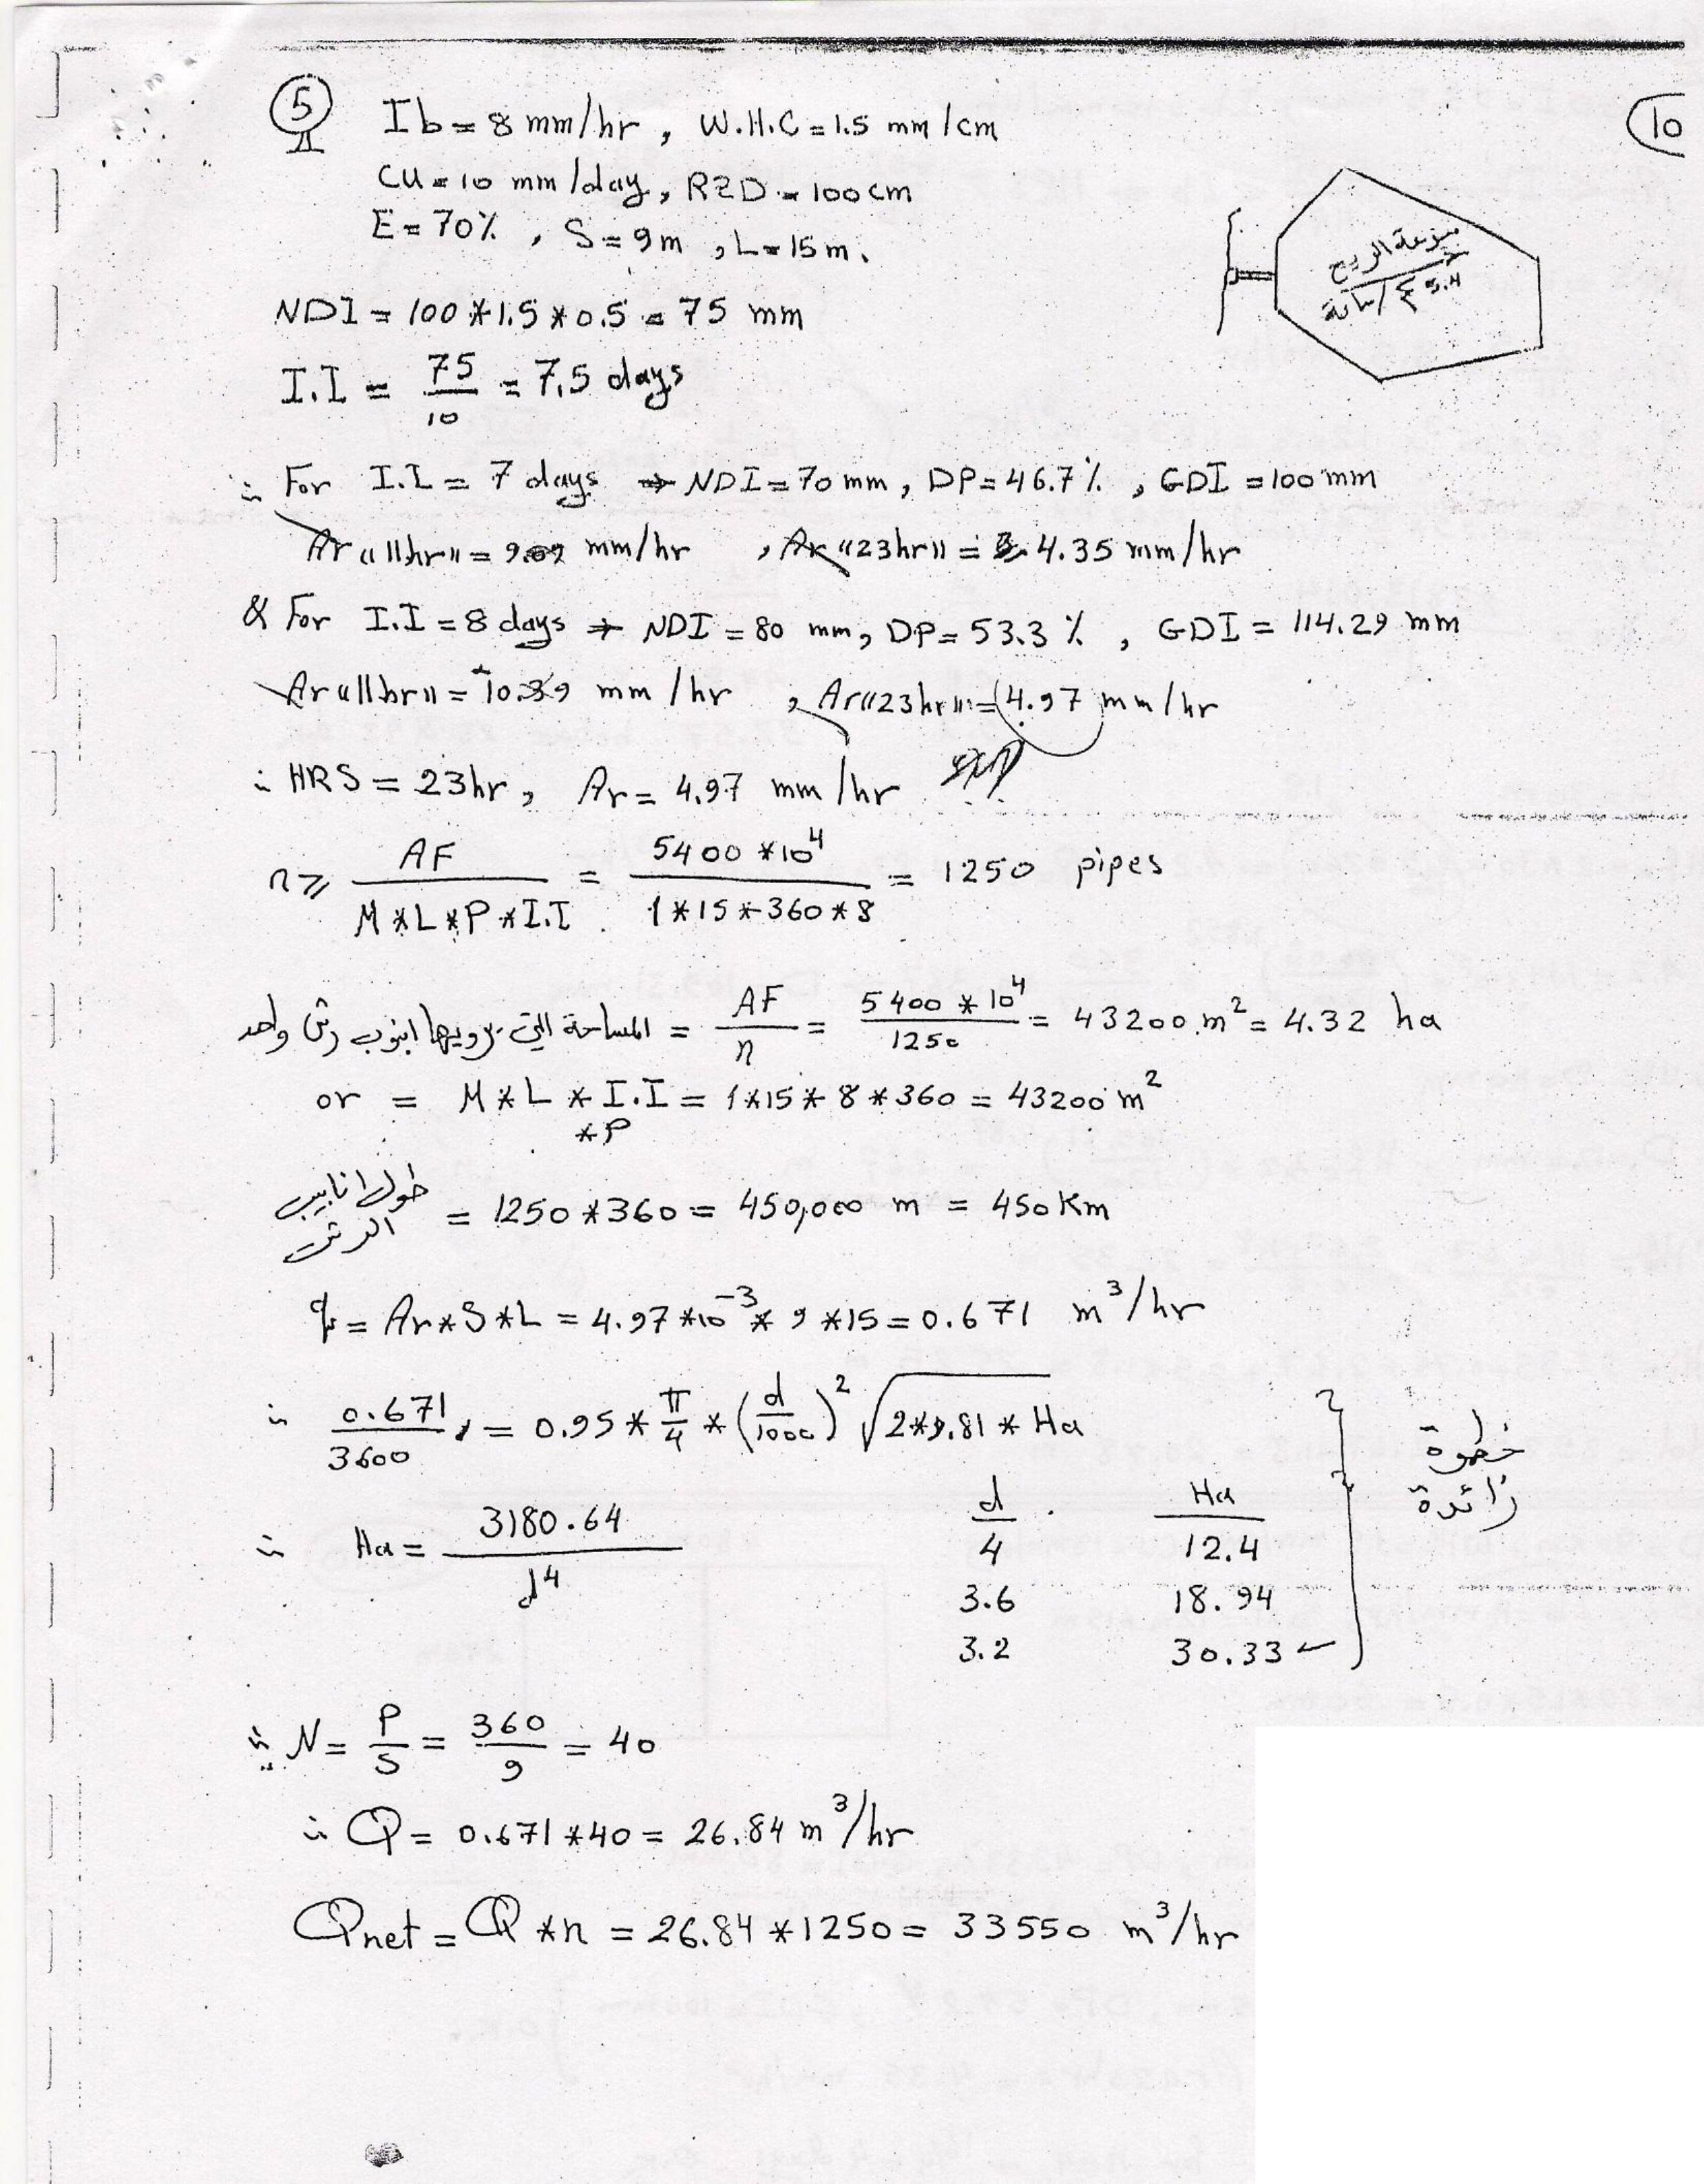 5
10
Ib = 8 mm/hr , W.H.C = 1.5 mm/cm
CU = 10 mm/day , RZD = 100 cm
E = 70% , S = 9m , L = 15 m.
مزرعة الربيع
NDI = 100 * 1.5 * 0.5 = 75 mm
I.I = 75/10 = 7.5 days
∴ For I.I = 7 days → NDI = 70 mm , DP = 46.7 % , GDI = 100 mm
Ar "11hr" = 9.09 mm/hr , Ar "23hr" = 4.35 mm/hr
& For I.I = 8 days → NDI = 80 mm , DP = 53.3 % , GDI = 114.29 mm
Ar "11hr" = 10.39 mm/hr , Ar "23hr" = 4.97 mm/hr
∴ HRS = 23hr , Ar = 4.97 mm/hr
n ≥ AF / M * L * P * I.I = 5400 * 10^4 / 1 * 15 * 360 * 8 = 1250 pipes
المساحة التي يرويها انبوب رش واحد = AF/n = 5400 * 10^4 / 1250 = 43200 m² = 4.32 ha
or = M * L * I.I * P = 1 * 15 * 8 * 360 = 43200 m²
طول انابيب الرش = 1250 * 360 = 450,000 m = 450 Km
q = Ar * S * L = 4.97 * 10^-3 * 9 * 15 = 0.671 m³/hr
∴ 0.671/3600 = 0.95 * π/4 * (d/1000)² √2*9.81 * Ha
خطوة زائدة
∴ Ha = 3180.64 / d^4
d Ha
4 12.4
3.6 18.94
3.2 30.33 ✓
∴ N = P/S = 360/9 = 40
∴ Q = 0.671 * 40 = 26.84 m³/hr
Qnet = Q * n = 26.84 * 1250 = 33550 m³/hr